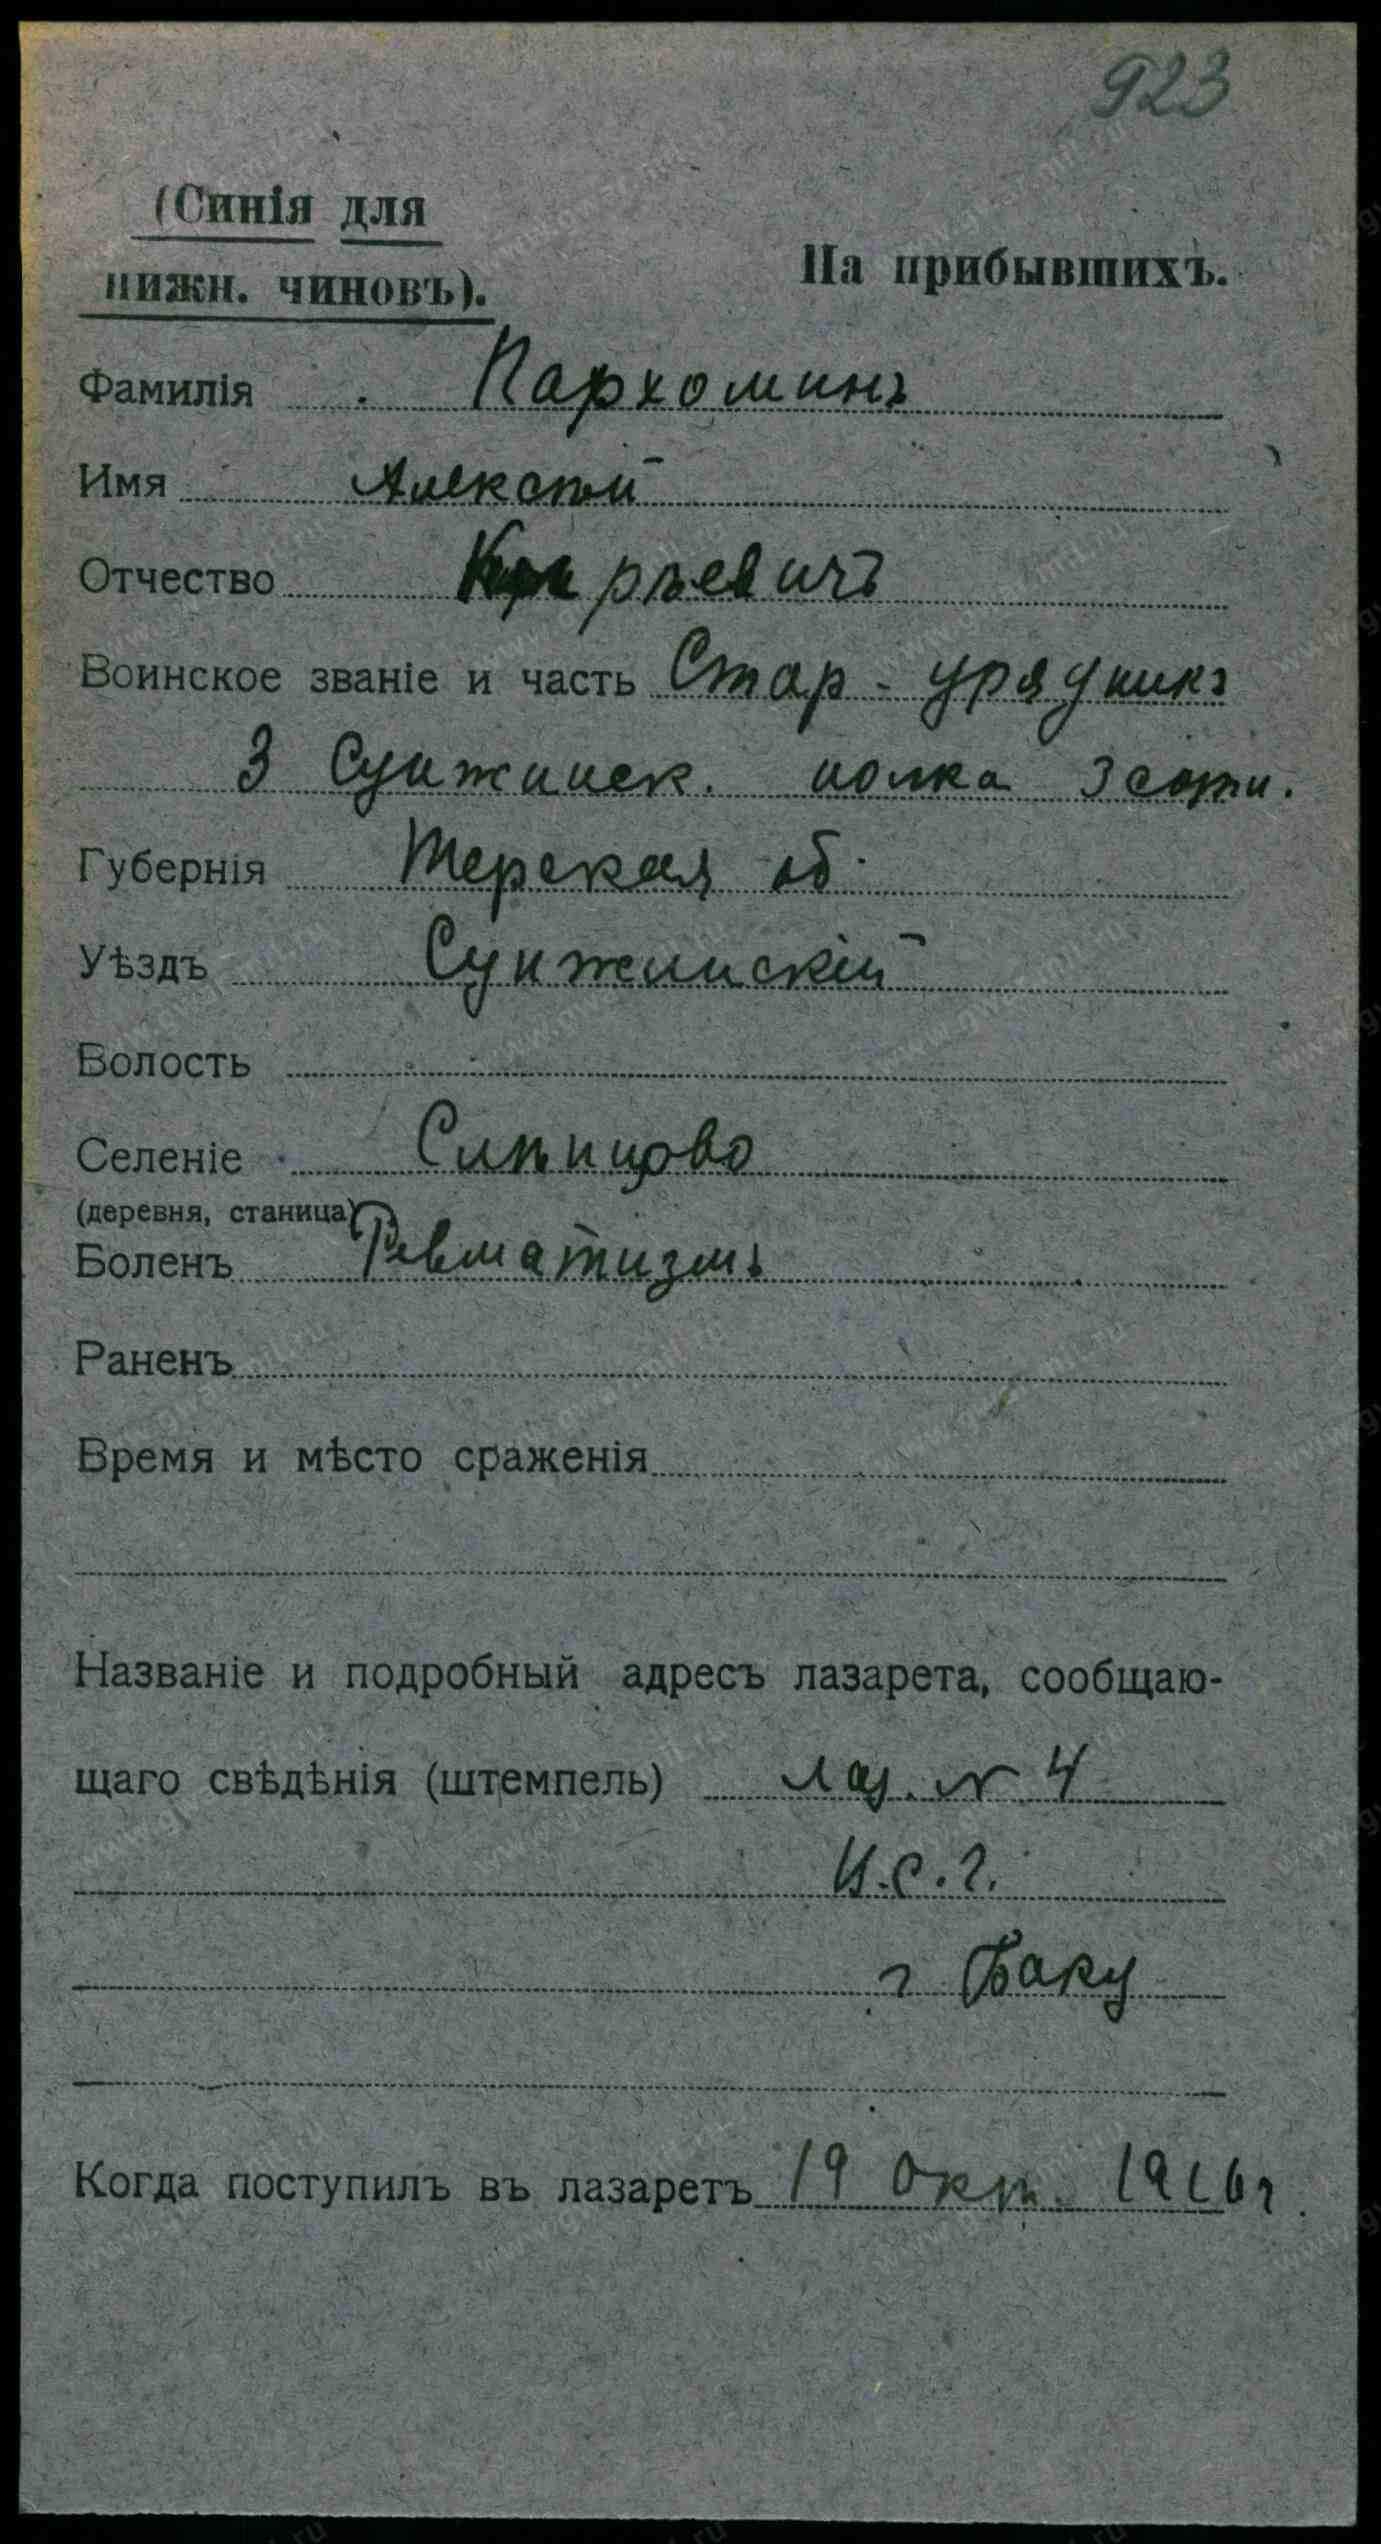 923
(Синія для
нижн. чиновъ).
На прибывшихъ.
Фамилія Пархоминъ
Имя Алексѣй
Отчество Кирьевичъ
Воинское званіе и часть Стар - урядникъ
3 Сунжинск. полка 3 сотн.
Губернія Терская об.
Уѣздъ Сунжинскій
Волость
Селеніе Слѣпцово
(деревня, станица)
Боленъ Ревматизмъ
Раненъ
Время и мѣсто сраженія
Названіе и подробный адресъ лазарета, сообщаю-
щаго свѣдѣнія (штемпель) Лаз. № 4
И.С.Г.
г Баку
Когда поступилъ въ лазаретъ 19 Окт. 1916 г.